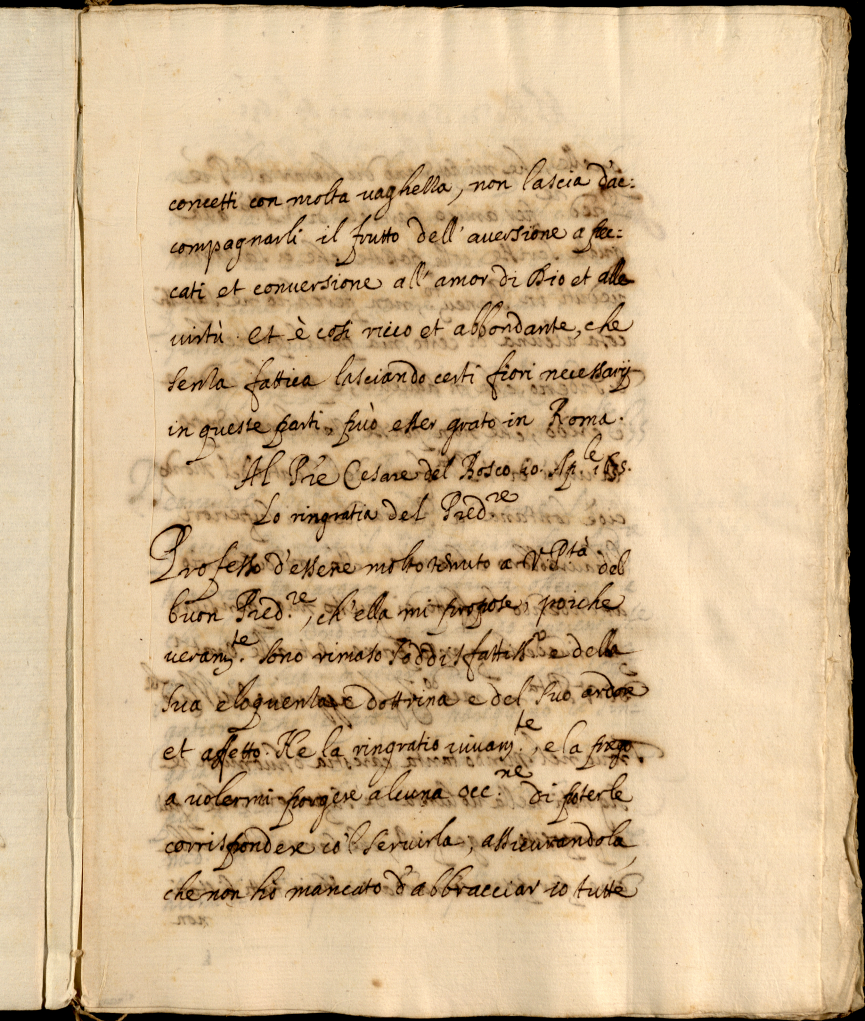 concetti con molta vaghezza, non lascia d'ac:
compagnarli il frutto dell'aversione a pec:
cati et conversione all'amor di Dio et alle
virtù. et è così ricco et abbondante, che
senza fattica lasciando certi fiori necessarij
in queste parti, può esser grato in Roma.
Al Pre Cesare del Bosco 20. Ap.le 1635.
Lo ringratia del Pred.re
Professo d'essere molto tenuto a V. P.tà del
buon Pred.re, ch'ella mi propose, poiche
veram.te sono rimaso soddisfattiss.o e della
sua eloquenza e dottrina e del suo ardore
et affetto. Ne la ringratio vivam.te, e la prego
a volermi porgere alcuna occ.ne di poterle
corrispondere co'l servirla, assicurandola,
che non hò mancato d'abbracciar io tutte
non